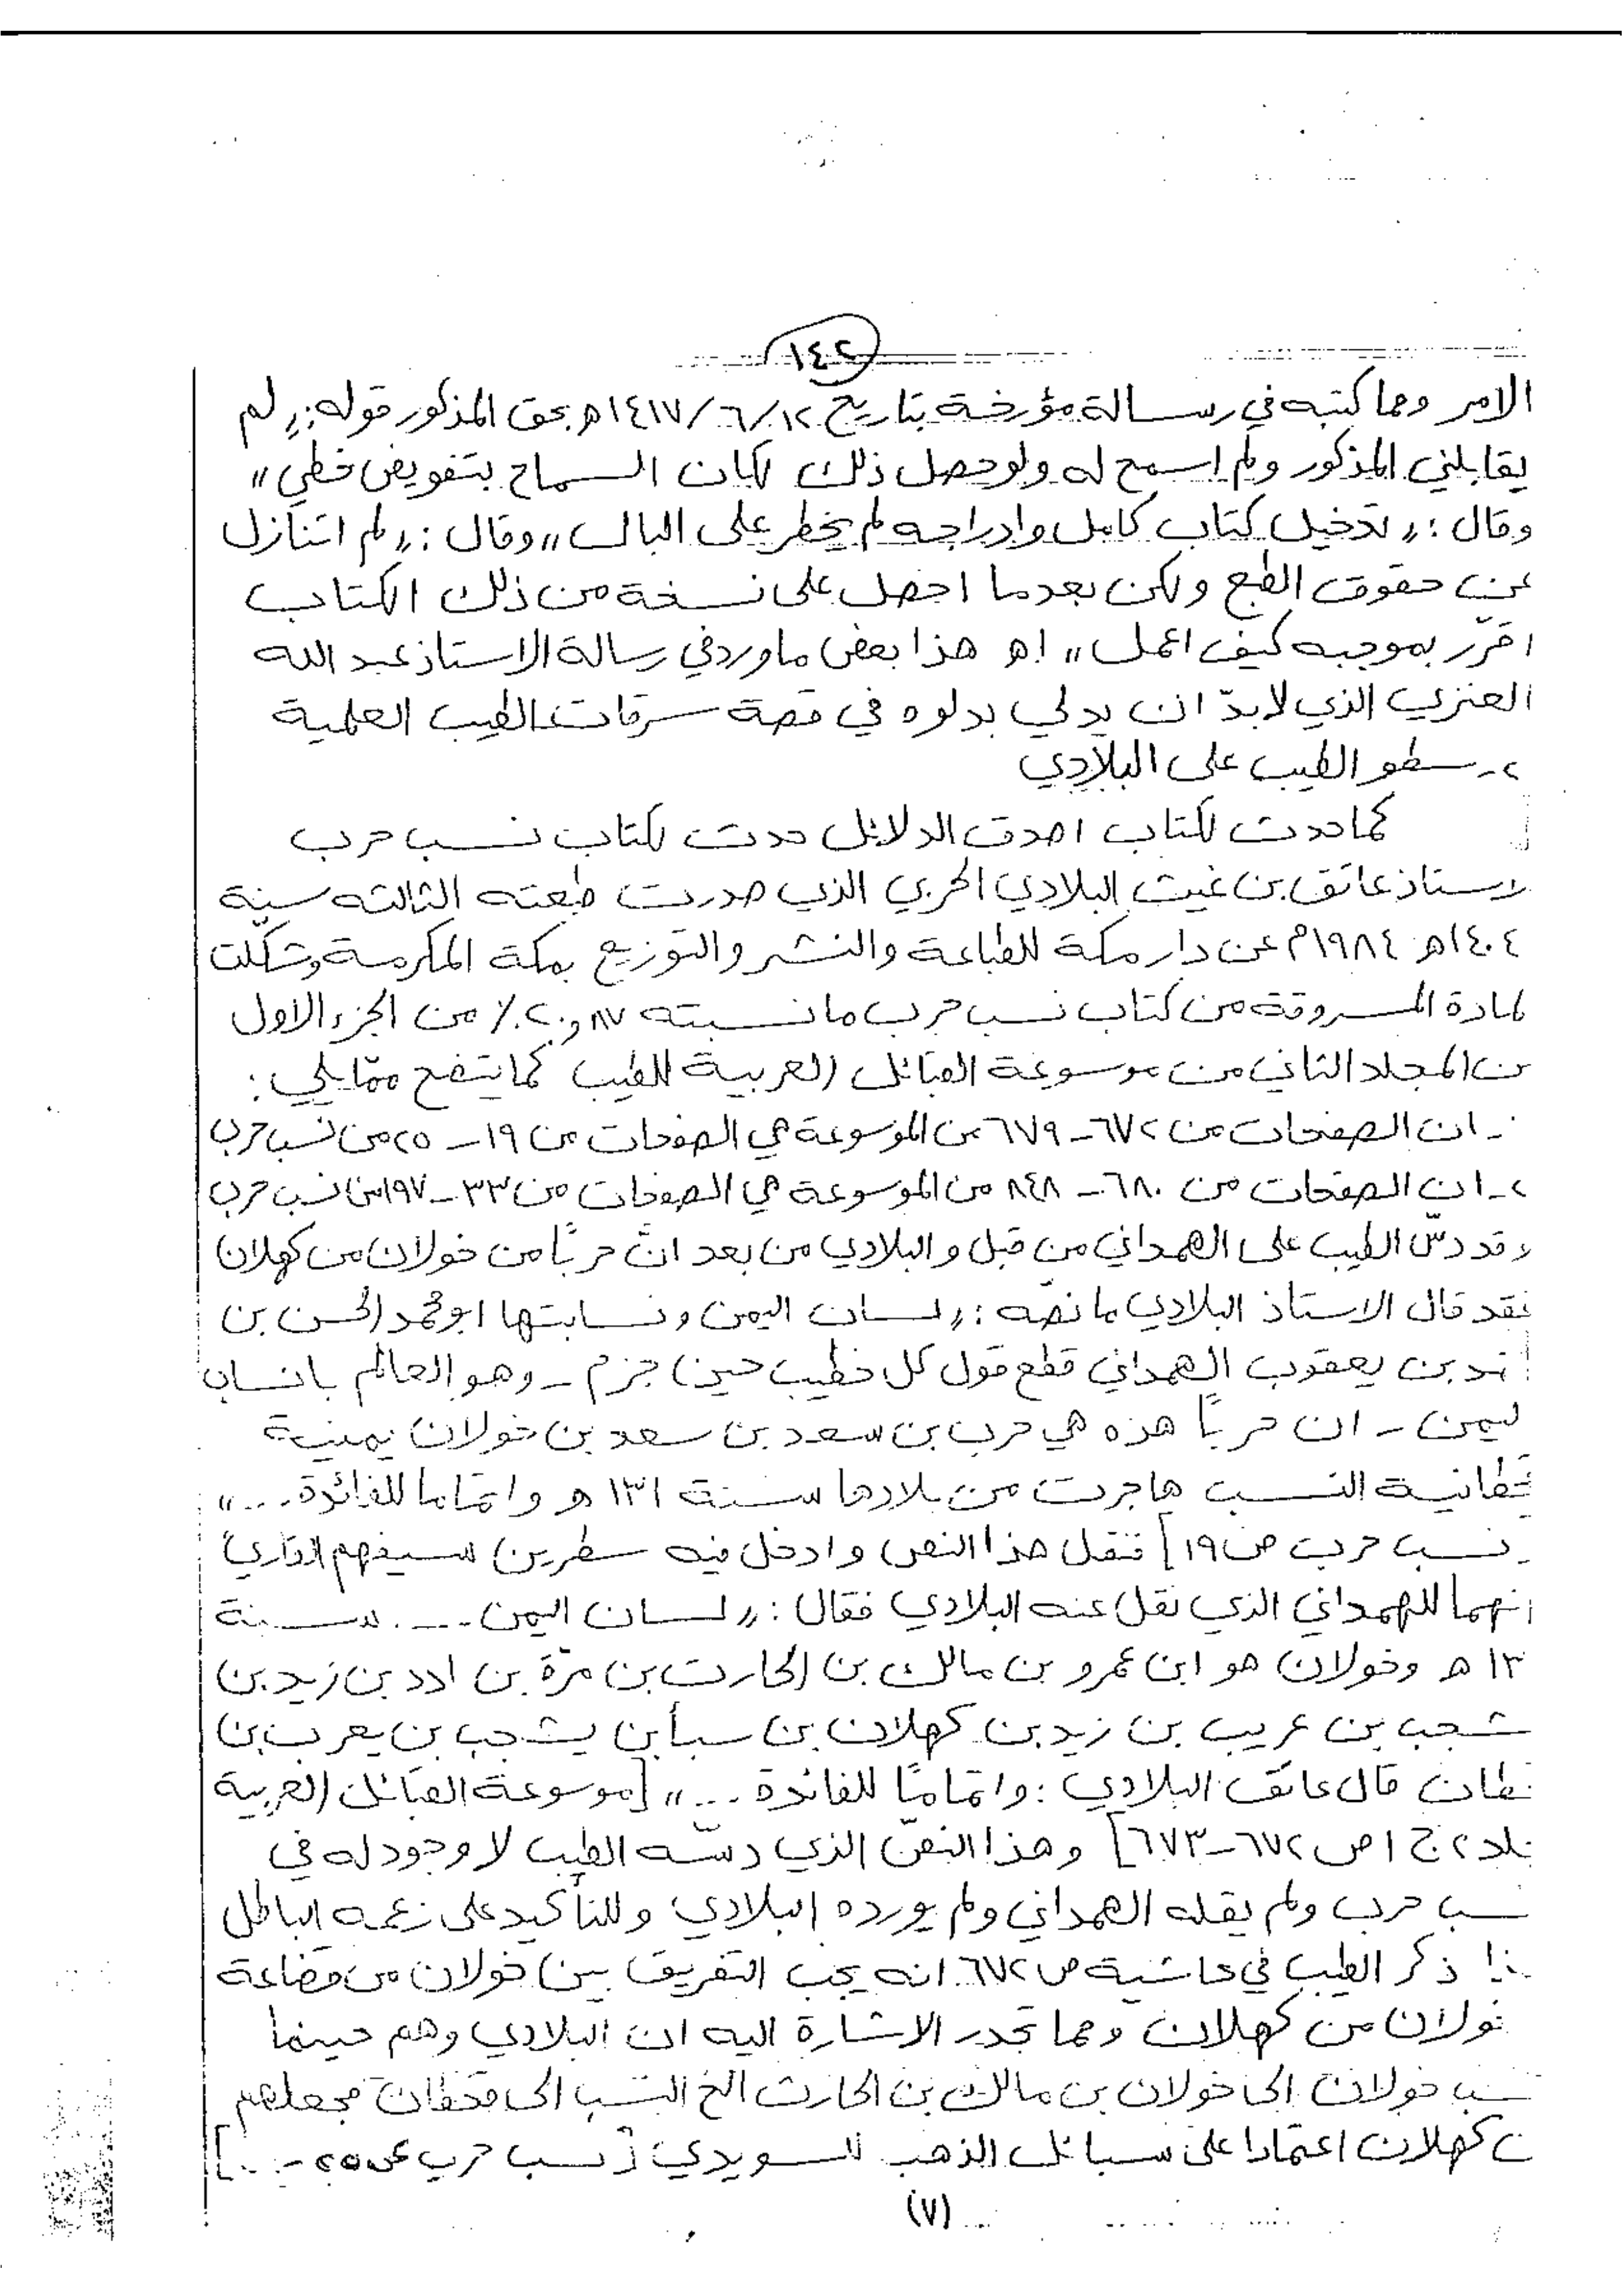 ١٤٢
الامر ومما كتبه في رسالة مؤرخة بتاريخ ١٢/ ٦/ ١٤١٧هـ بحق المذكور قوله: « لم
يقابلني المذكور ولم اسمح له ولو حصل ذلك لكان السماح بتفويض خطي »
وقال : « تدخيل كتاب كامل وادراجه لم يخطر على البال » وقال : « لم اتنازل
عن حقوق الطبع ولكن بعدما احصل على نسخة من ذلك الكتاب
اقرّر بموجبه كيف اعمل » اهـ هذا بعض ما ورد في رسالة الاستاذ عبد الله
العنزي الذي لابدّ ان يدلي بدلوه في قصة سرقات الطيب العلمية
٢- سطو الطيب على البلادي
كما حدث لكتاب اصدق الدلائل حدث لكتاب نسب حرب
لاستاذ عاتق بن غيث البلادي الحربي الذي صدرت طبعته الثالثه سنة
١٤٠٤هـ ١٩٨٤م عن دار مكة للطباعة والنشر والتوزيع بمكة المكرمة وشكّلت
لمادة المسروقة من كتاب نسب حرب ما نسبته ٢٠,٨٧٪ من الجزء الاول
من المجلد الثاني من موسوعة القبائل العربية للطيب كما يتضح ممّا يلي :
- ان الصفحات من ٦٧٢-٦٧٩ من الموسوعة هي الصفحات من ١٩ - ٢٥ من نسب حرب
٢- ان الصفحات من ٦٨٠ - ٨٤٨ من الموسوعة هي الصفحات من ٣٣-١٩٧ من نسب حرب
وقد دسّ الطيب على الهمداني من قبل والبلادي من بعد انّ حربًا من خولان من كهلان
فقد قال الاستاذ البلادي ما نصّه : « لسان اليمن ونسابتها ابو محمد الحسن بن
احمد بن يعقوب الهمداني قطع قول كل خطيب حين جزم - وهو العالم بانساب
ليمن - ان حربًا هذه هي حرب بن سعد بن سعد بن خولان يمنية
قحطانية النسب هاجرت من بلادها سنة ١٣١ هـ واتماما للفائدة ... »
نسب حرب ص ١٩] فنقل هذا النص وادخل فيه سطرين سيفهم القارئ
انهما للهمداني الذي نقل عنه البلادي فقال : « لسان اليمن .... سنة
١٣ هـ وخولان هو ابن عمرو بن مالك بن الحارث بن مرّة بن ادد بن زيد بن
شجب بن عريب بن زيد بن كهلان بن سبأ بن يشجب بن يعرب بن
قحطان قال عاتق البلادي : واتمامًا للفائدة ... » [موسوعة القبائل العربية
مجلد ٢ ج ١ ص ٦٧٢-٦٧٣] وهذا النصّ الذي دسّه الطيب لا وجود له في
نسب حرب ولم يقله الهمداني ولم يورده البلادي وللتأكيد على زعمه الباطل
هذا ذكر الطيب في حاشية ص ٦٧٢ انه يجب التفريق بين خولان من قضاعة
خولان من كهلان ومما تجدر الاشارة اليه ان البلادي وهم حينما
نسب خولان الى خولان بن مالك بن الحارث الخ النسب الى قحطان فجعلهم
من كهلان اعتمادا على سبائك الذهب للسويدي [نسب حرب ص ٢٥ - ]
(٧)